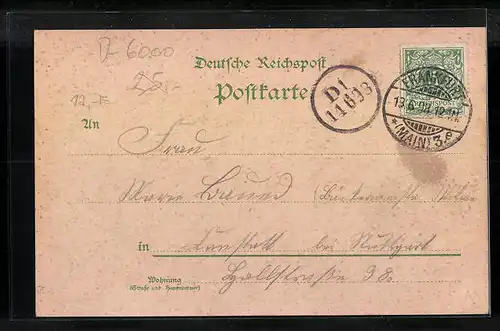 6000
Deutsche Reichspost
25.-
Postkarte
12,-
D1
14 6 98
FRANKFURT
13.6.98.12-1N
* (MAIN) 3.e
REICHSPOST
An
Frau
Marie Bauer
in Cannstatt bei Stuttgart
Wohnung
(Straße und Hausnummer)
Hallstraße 38.